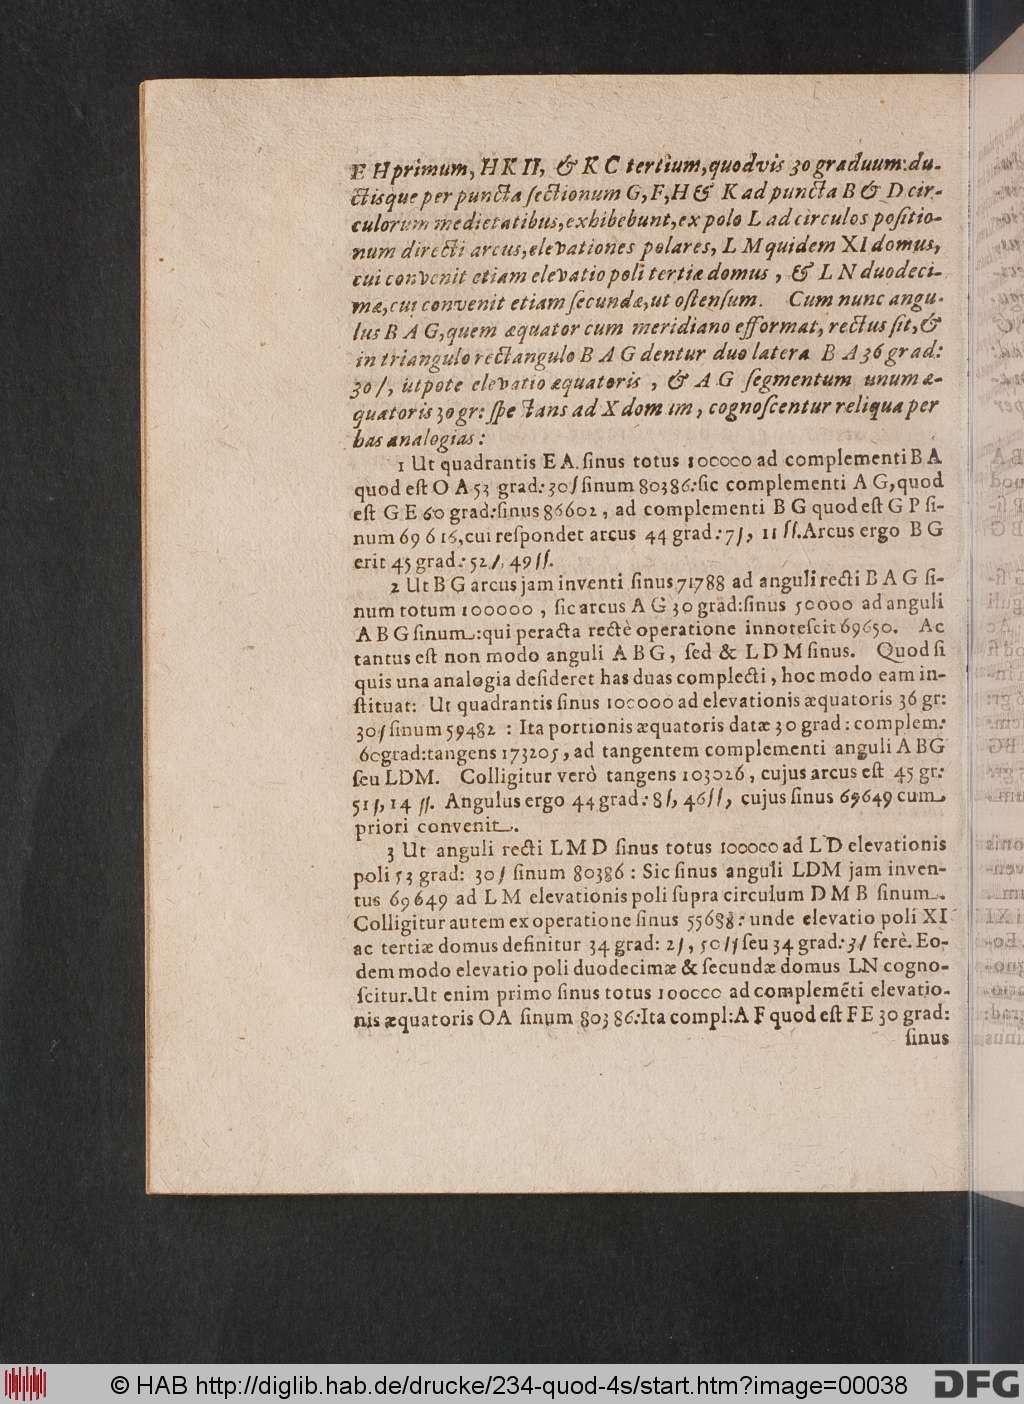 E H primum, H K II, & K C tertium, quodvis 30 graduum: du-
ctisque per puncta ſectionum G, F, H & K ad puncta B & D cir-
culorum medietatibus, exhibebunt, ex polo L ad circulos poſitio-
num directi arcus, elevationes polares, L M quidem XI domus,
cui convenit etiam elevatio poli tertiæ domus, & L N duodeci-
mæ, cui convenit etiam ſecundæ, ut oſtenſum. Cum nunc angu-
lus B A G, quem æquator cum meridiano efformat, rectus ſit, &
in triangulo rectangulo B A G dentur duo latera B A 36 grad:
30 /, utpote elevatio æquatoris, & A G ſegmentum unum æ-
quatoris 30 gr: ſpe ctans ad X dom um, cognoſcentur reliqua per
has analogias:
1 Ut quadrantis E A. ſinus totus 100000 ad complementi B A
quod eſt O A 53 grad: 30 / ſinum 80386: ſic complementi A G, quod
eſt G E 60 grad: ſinus 86602, ad complementi B G quod eſt G P ſi-
num 69 6 16, cui reſpondet arcus 44 grad: 7 /, 11 //. Arcus ergo B G
erit 45 grad: 52 /, 49 //.
2 Ut B G arcus jam inventi ſinus 71788 ad anguli recti B A G ſi-
num totum 100000, ſic arcus A G 30 grad: ſinus 50000 ad anguli
A B G ſinum: qui peracta rectè operatione innoteſcit 69650. Ac
tantus eſt non modo anguli A B G, ſed & L D M ſinus. Quod ſi
quis una analogia deſideret has duas complecti, hoc modo eam in-
ſtituat: Ut quadrantis ſinus 100000 ad elevationis æquatoris 36 gr:
30 / ſinum 59482 : Ita portionis æquatoris datæ 30 grad: complem:
60 grad: tangens 173205, ad tangentem complementi anguli A BG
ſeu LDM. Colligitur verò tangens 103026, cujus arcus eſt 45 gr:
51 /, 14 //. Angulus ergo 44 grad: 8 /, 46 //, cujus ſinus 69649 cum
priori convenit.
3 Ut anguli recti L M D ſinus totus 100000 ad L D elevationis
poli 53 grad: 30 / ſinum 80386 : Sic ſinus anguli LDM jam inven-
tus 69649 ad L M elevationis poli ſupra circulum D M B ſinum.
Colligitur autem ex operatione ſinus 55688: unde elevatio poli XI
ac tertiæ domus definitur 34 grad: 2 /, 50 // ſeu 34 grad: 3 / ferè. Eo-
dem modo elevatio poli duodecimæ & ſecundæ domus LN cogno-
ſcitur. Ut enim primo ſinus totus 100000 ad complemẽti elevatio-
nis æquatoris OA ſinum 80386: Ita compl: A F quod eſt F E 30 grad:
ſinus
© HAB http://diglib.hab.de/drucke/234-quod-4s/start.htm?image=00038
DFG